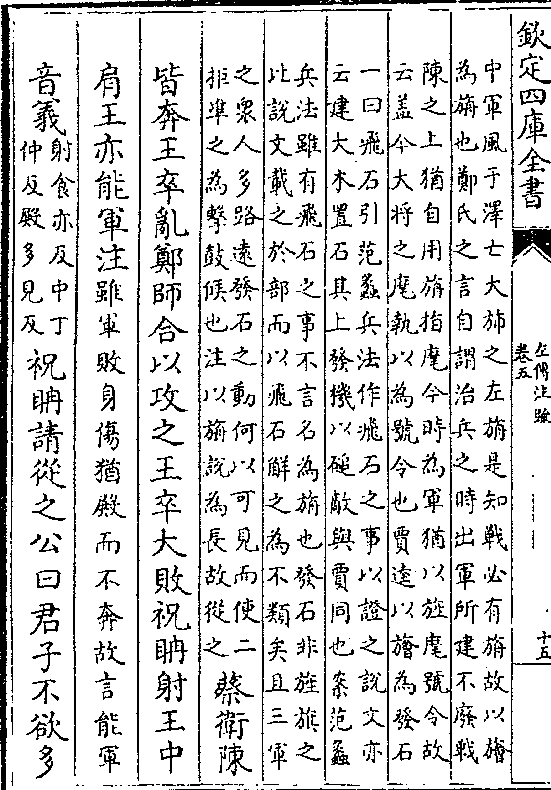 欽定四庫全書
左傳注疏
卷五
十五
中軍風于澤士大斾之左旃是知戰必有旃故以旝
為旃也鄭氏之言自謂治兵之時出軍所建不廢戰
陳之上猶自用旃指麾今時為軍猶以旌麾號令故
云盖今大將之麾執以為號令也賈逵以旝為發石
一曰飛石引范蠡兵法作飛石之事以證之說文亦
云建大木置石其上發機以磓敵與賈同也案范蠡
兵法雖有飛石之事不言名為旃也發石非旌旗之
比說文載之於部而以飛石解之為不類矣且三軍
之眾人多路遠發石之動何以可見而使二
拒準之為擊鼓候也注以旃說為長故從之
蔡衛陳
皆奔王卒亂鄭師合以攻之王卒大敗祝聃射王中
肩王亦能軍注雖軍敗身傷猶殿而不奔故言能軍
音義
射食亦反中丁
仲反殿多見反
祝聃請從之公曰君子不欲多